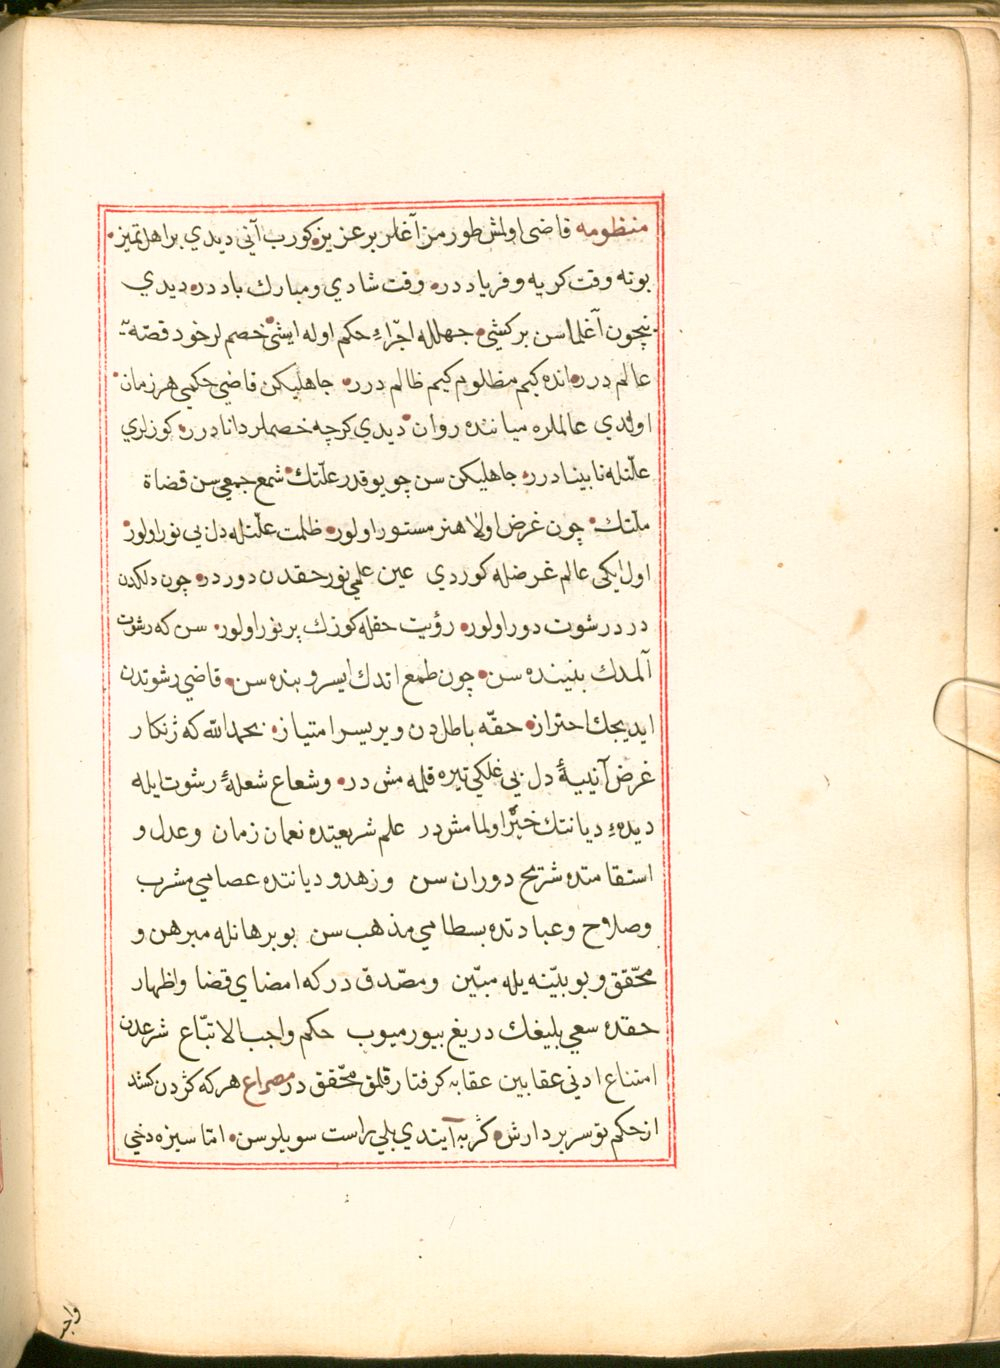 منظومه قاضی اولمش طورمز آغلر بر عزیز کورب آنی دیدي بر اهل تمیز
بونه وقت کریه و فریاد در وقت شادي و مبارك باد در دیدي
نیچون آغلماسن بر کشي جهلله اجراء حکم اوله ایشي خصملر خود قصّه یه
عالم درر انده کیم مظلوم کیم ظالم درر جاهلیکن قاضي حکمي هر زمان
اولدي عالملره میاننده روان دیدي کرچه خصملر دانا درر کوزلري
علّتله نابینا درر جاهلیکن سن چو یوقدر علّتك شمع جمعي سن قضاة
ملّتك چون غرض اولا هنر مستور اولور ظلمت علّتله دل بي نور اولور
اول ایکي عالم غرضله کوردي عین علمي نور حقدن دور در چون دلکدن
درد رشوت دور اولور رؤیت حقله کوزك پر نور اولور سن که رشوت
آلمدك بنینده سن چون طمع اتدك ایسر و بنده سن قاضي رشوتدن
ایدیجك احتراز حقّه باطلدن ویریسر امتیاز بحمد الله که ژنکار
غرض آیینۀ دل بي غلکي تیره قلمه مش در و شعاع شعلۀ رشوت ایله
دیدۀ دیانتك خیره اولمامش در علم شریعتده نعمان زمان و عدل و
استقامتده شریح دوران سن و زهد و دیانتده عصامي مشرب
و صلاح و عبادتده بسطامي مذهب سن بو برهانله مبرهن و
محّقق و بو بیّنه یله مبّین و مصّدق در که امضاي قضا و اظهار
حقده سعي بلیغك دریغ بیورمیوب حکم واجب الاتبّاع شرعدن
امتناع ادني عقابین عقابه کرفتار قلمق محّقق در مصراع هر که کردن کشد
از حکم تو سر بر دارش کر به آیندي بلي راست سویلرسن امّا سیزه دخي
واجب